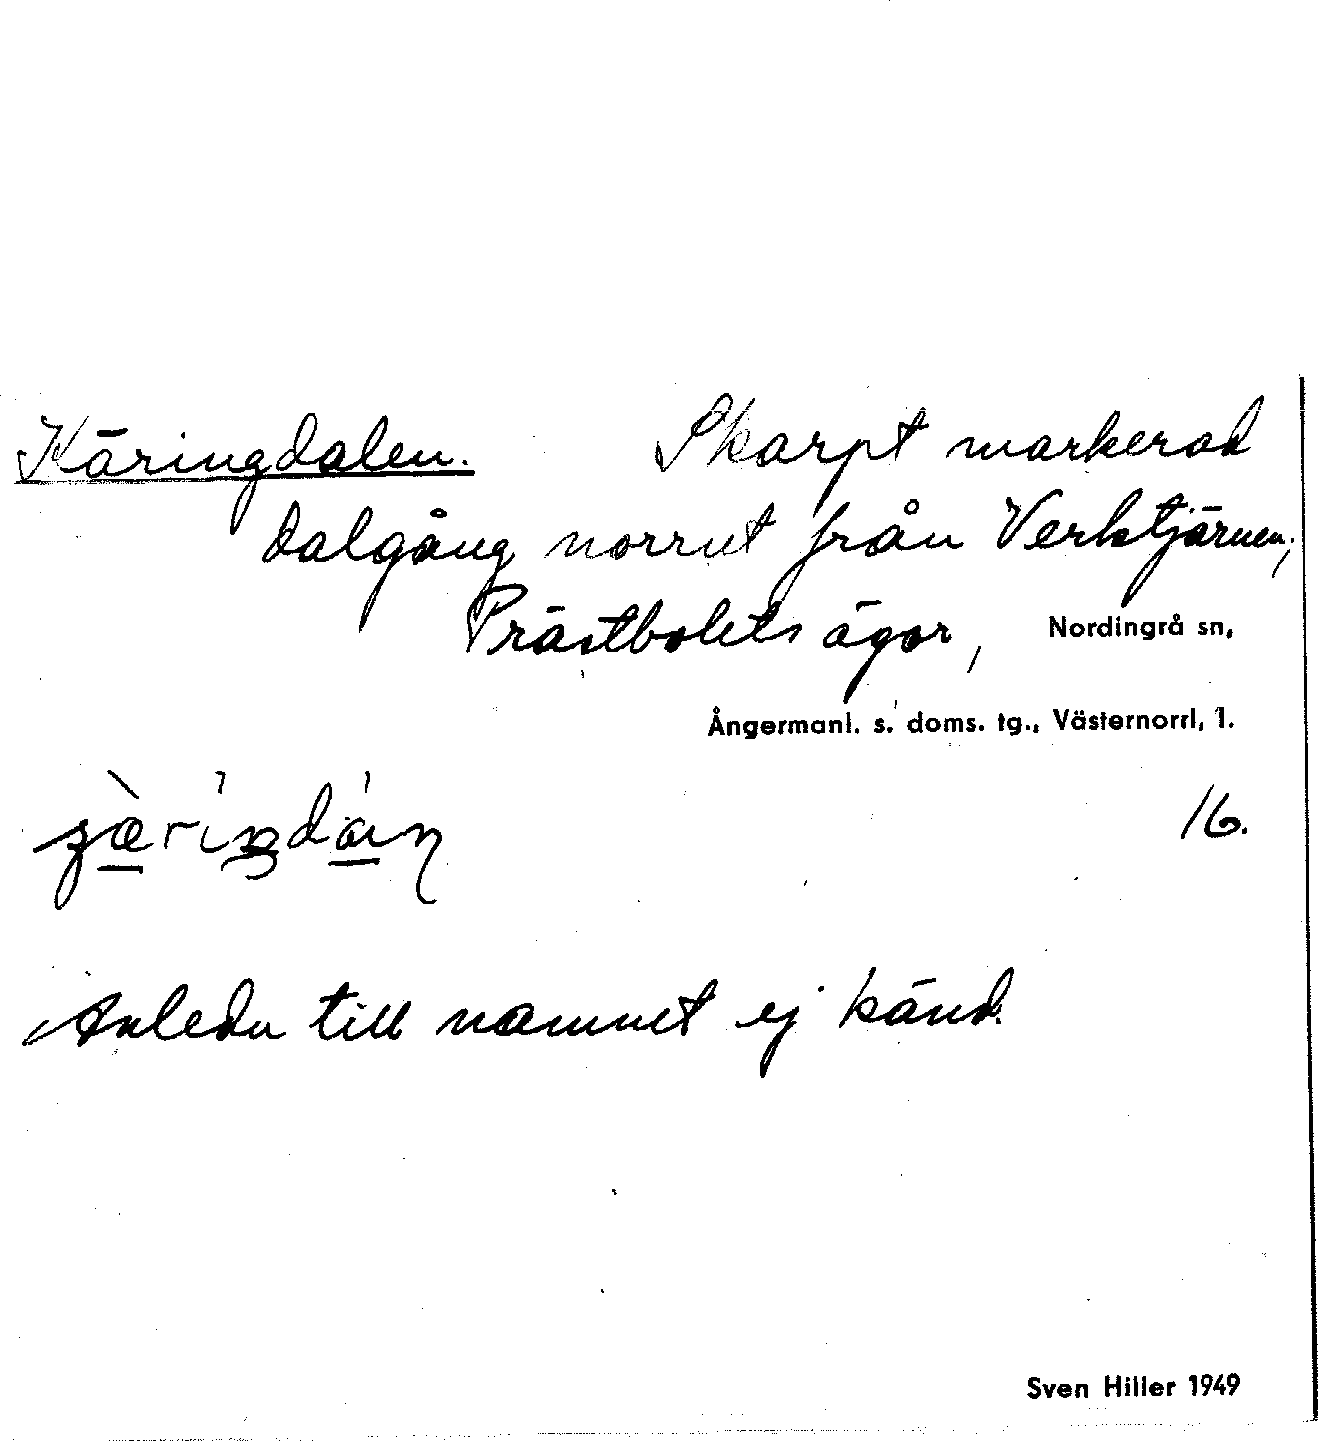 Käringdalen. Skarpt markerad
dalgång norrut från Verktjärnen;
Prästbolets ägor, Nordingrå sn,
Ångermanl. s. doms. tg., Västernorrl, l.
16.
Anledn till namnet ej känd.
Sven Hiller 1949